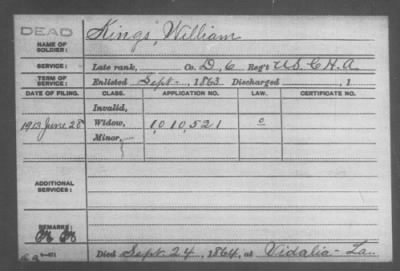 DEAD
NAME OF SOLDIER: Kings, William
SERVICE: Late rank, Co. D, 6 Reg't U.S.C.H.A
TERM OF SERVICE: Enlisted Sept. , 1863 Discharged , 1
DATE OF FILING. CLASS. APPLICATION NO. LAW. CERTIFICATE NO.
Invalid,
1913 June 28 Widow, 1,010,521 o
Minor,
ADDITIONAL SERVICES:
REMARKS:
Died Sept. 24, 1864, at Vidalia - La.